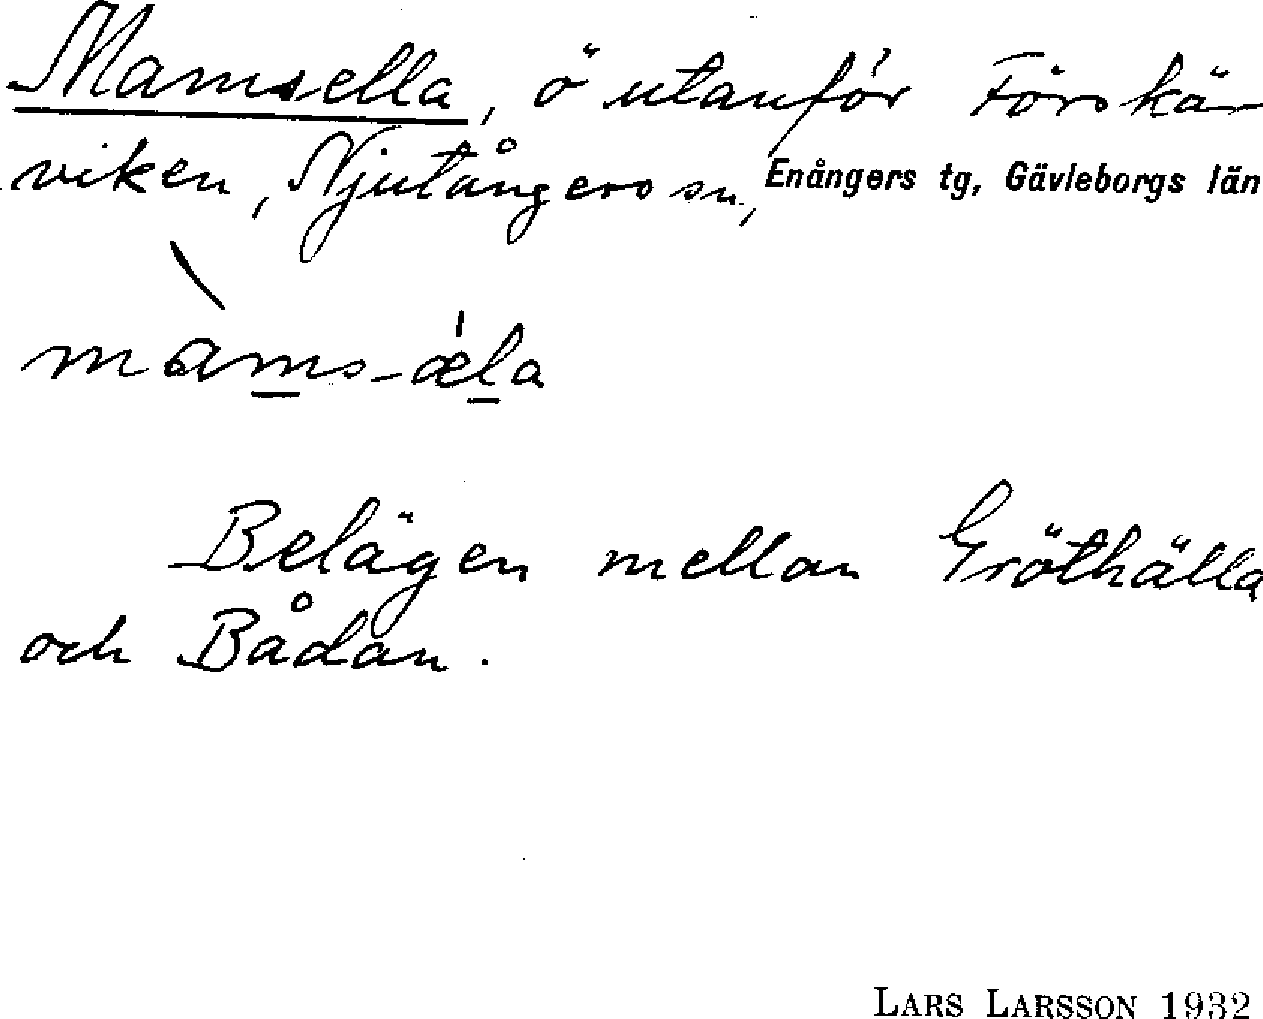 Mamsella, ö utanför Förskä-
viken, Njutångers sn, Enångers tg, Gävleborgs län
màms-æ̍la
Belägen mellan Gröthälla
och Bådan.
LARS LARSSON 1932